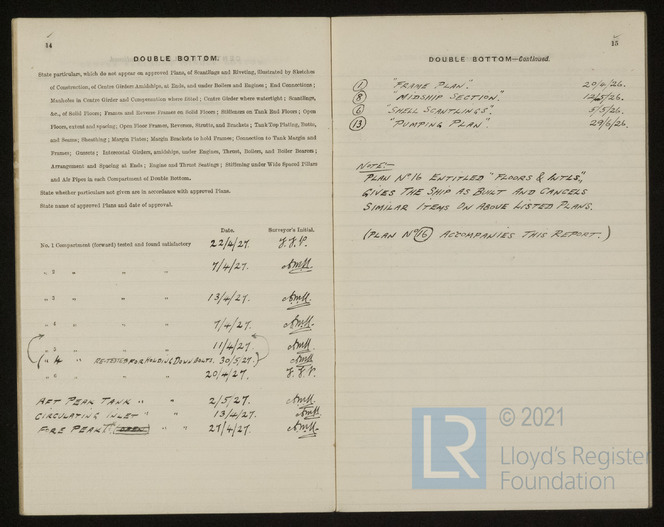 14
DOUBLE BOTTOM.
State particulars, which do not appear on approved Plans, of Scantlings and Riveting, illustrated by Sketches
of Construction, of Centre Girders Amidships, at Ends, and under Boilers and Engines; End Connections;
Manholes in Centre Girder and Compensation where fitted; Centre Girder where watertight; Scantlings,
&c., of Solid Floors; Frames and Reverse Frames on Solid Floors; Stiffeners on Tank End Floors; Open
Floors, extent and spacing; Open Floor Frames, Reverses, Struts, and Brackets; Tank Top Plating, Butts,
and Seams; Sheathing; Margin Plates; Margin Brackets to hold Frames; Connection to Tank Margin and
Frames; Gussets; Intercostal Girders, amidships, under Engines, Thrust, Boilers, and Boiler Bearers;
Arrangement and Spacing at Ends; Engine and Thrust Seatings; Stiffening under Wide Spaced Pillars
and Air Pipes in each Compartment of Double Bottom.
State whether particulars not given are in accordance with approved Plans.
State name of approved Plans and date of approval.
Date. Surveyor's Initial.
No. 1 Compartment (forward) tested and found satisfactory 22/4/27. J.J.P.
„ 2 „ „ „ 7/4/27.
„ 3 „ „ „ 13/4/27.
„ 4 „ „ „ 7/4/27.
„ 5 „ „ „ 11/4/27
(„ 4 „ RE-TESTED FOR HOLDING DOWN BOLTS. 30/5/27.)
„ 6 „ „ „ 20/4/27. J.J.P.
AFT PEAK TANK „ „ 2/5/27.
CIRCULATING INLET „ „ 13/4/27.
FORE PEAK „ „ 27/4/27.
15
DOUBLE BOTTOM—Continued.
(1) "FRAME PLAN". 20/4/26.
(8) "MIDSHIP SECTION". 12/5/26.
(6) "SHELL SCANTLINGS". 5/5/26.
(13) "PUMPING PLAN". 29/6/26.
NOTE:-
PLAN Nº 16 ENTITLED "FLOORS & INTLS",
GIVES THE SHIP AS BUILT AND CANCELS
SIMILAR ITEMS ON ABOVE LISTED PLANS.
(PLAN Nº (16) ACCOMPANIES THIS REPORT.)
LR
© 2021
Lloyd's Register
Foundation